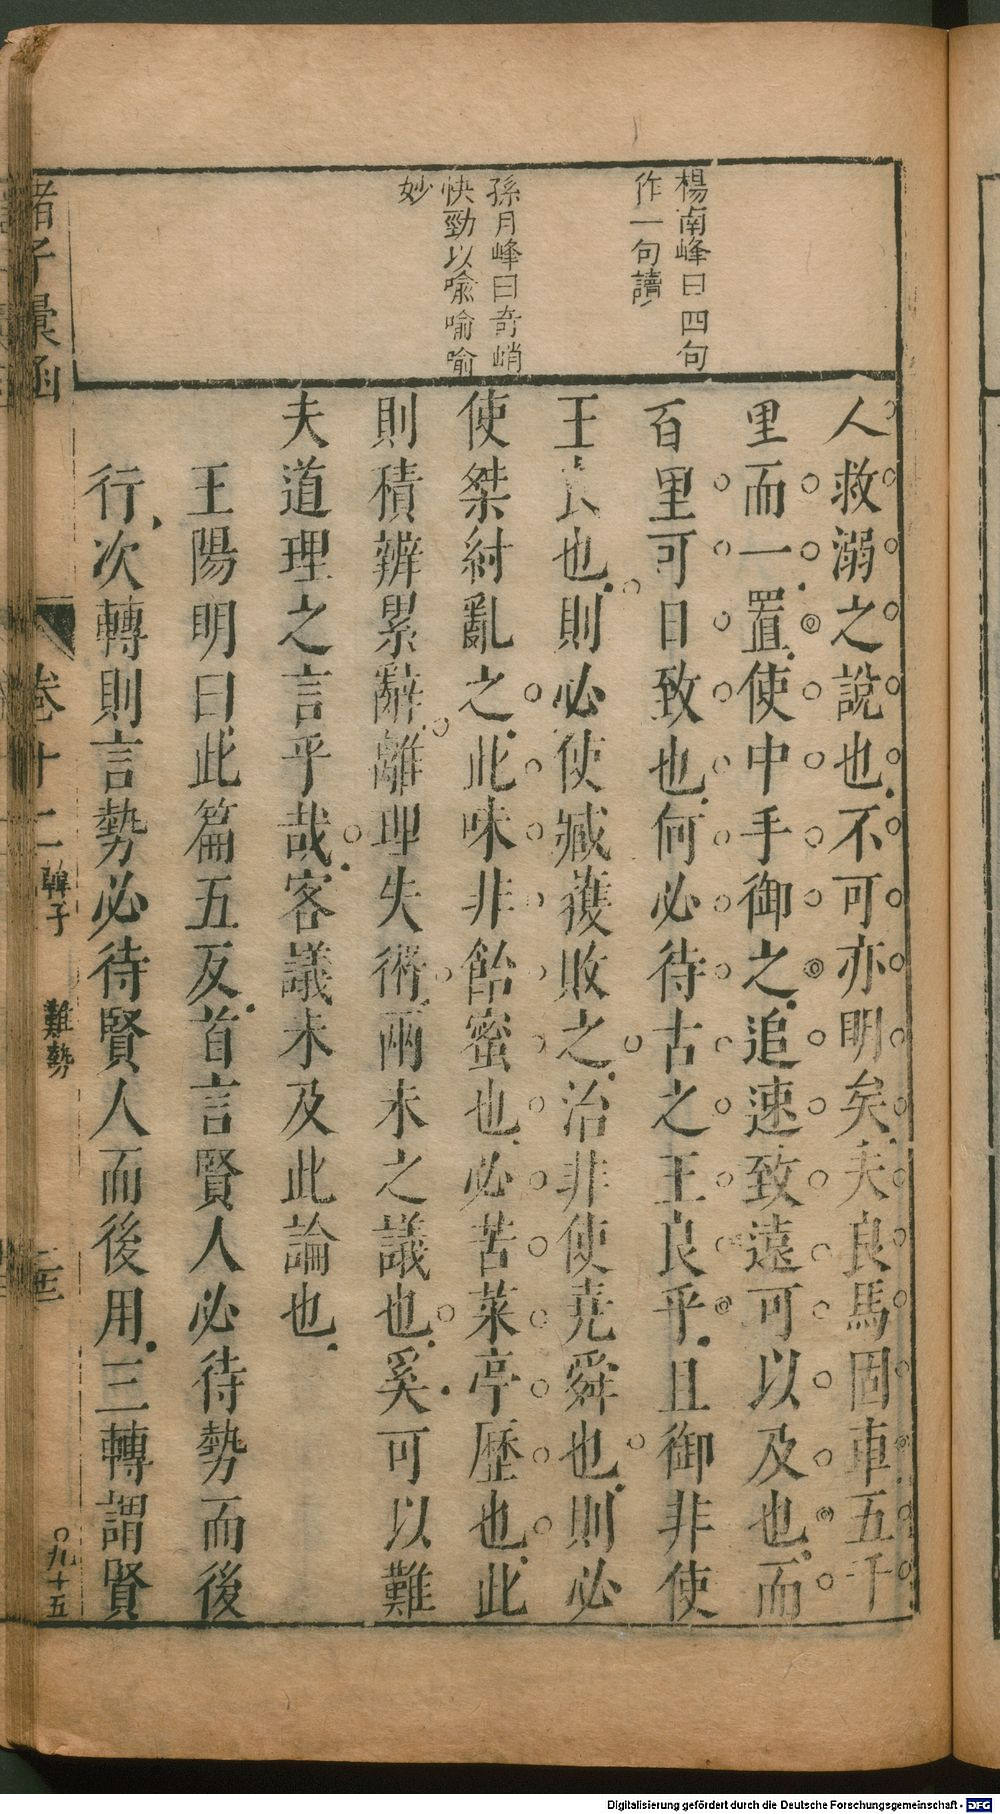 楊南峰曰四句
作一句讀
孫月峰曰奇峭
快勁以喩喻喻
妙
人救溺之說也不可亦明矣夫良馬固車五千
里而一置使中手御之追速致遠可以及也而
百里可日致也何必待古之王良乎且御非使
王良也則必使臧獲敗之治非使尭舜也則必
使桀紂亂之此味非飴蜜也必苦菜亭歴也此
則積辨累辭離理失術兩未之議也奚可以難
夫道理之言乎哉客議未及此論也
王陽明曰此篇五反首言賢人必待勢而後
行次轉則言勢必待賢人而後用三轉謂賢
諸子彙函
卷十二
韓子
難勢
九十五
Digitalisierung gefördert durch die Deutsche Forschungsgemeinschaft - DFG